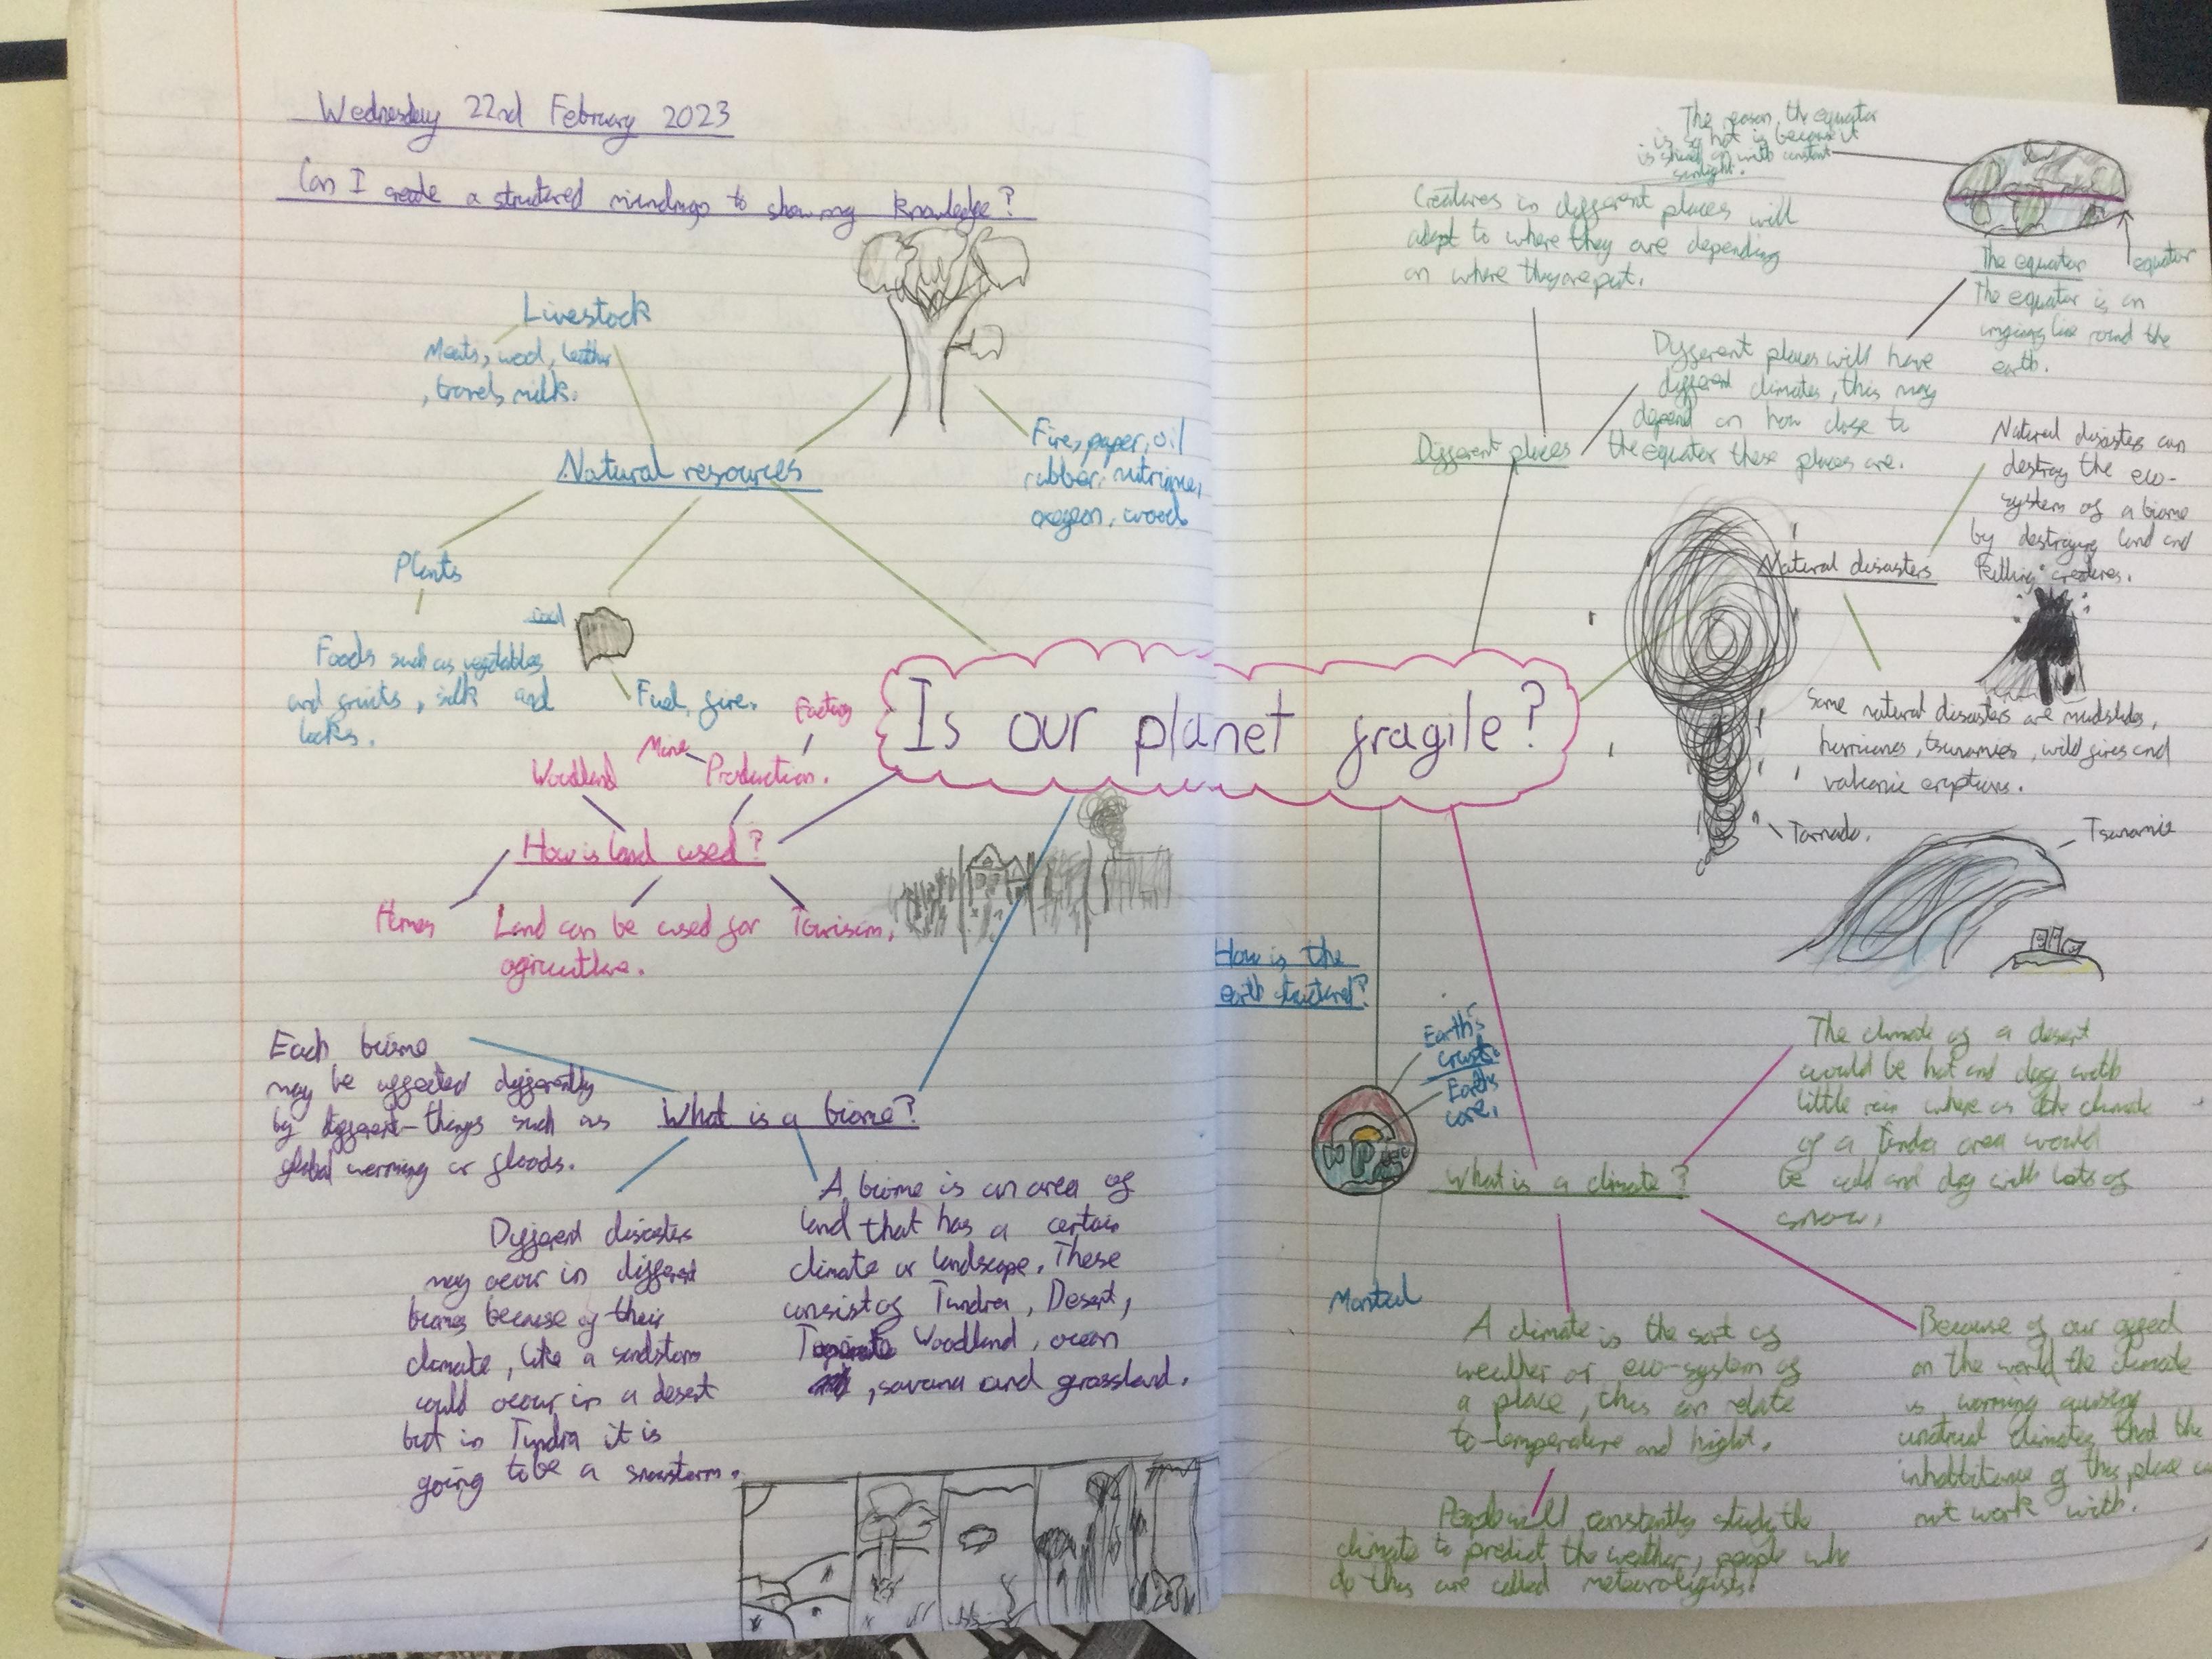 Wednesday 22nd February 2023
Can I create a structured mindmap to show my knowledge?
Livestock
Meats, wool, leather
, travel, milk.
Natural resources
Fire, paper, oil
rubber, nutrients,
oxegeon, wood
Plants
Foods such as vegetables
and fruits, silk and
coal
Fuel, fire.
Is our planet fragile?
Woodland
Mine
Production.
Factory
How is land used?
Homes
Land can be used for
agriculture.
Tourism,
Each biome
may be affected differently
by different things such as
global warming or floods.
What is a biome?
Different disasters
may occur in different
biomes because of their
climate, like a sandstorm
could occur in a desert
but in Tundra it is
going to be a snowstorm.
A biome is an area of
land that has a certain
climate or landscape. These
consist of Tundra, Desert,
Woodland, ocean
, savana and grassland.
The reason the equator
is so hot is because it
is shined on with constant
sunlight.
equator
The equator
The equator is an
line round the
earth.
Creatures in different places will
adapt to where they are depending
on where they are put.
Different places will have
different climates, this may
depend on how close to
the equator these places are.
Different places
Natural disasters can
destroy the eco-
system of a biome
by destroying land and
killing creatures.
Natural disasters
Some natural disasters are mudslides,
hurricanes, tsunamies, wild fires and
valconic eruptions.
Tornado.
Tsunamie
How is the
earth structured?
Earth's
crust.
Earth's
core.
Mantel
What is a climate?
The climate of a desert
would be hot and dry with
little rain where as the climate
of a Tundra area would
be cold and dry with lots of
snow.
A climate is the sort of
weather or eco-system of
a place, this can relate
to temperature and hight.
Because of our affect
on the world the climate
is warming causing
unatrual climates that the
inhabbitance of this place can
not work with.
People will constantly study the
climate to predict the weather, people who
do this are called meteoroligists!